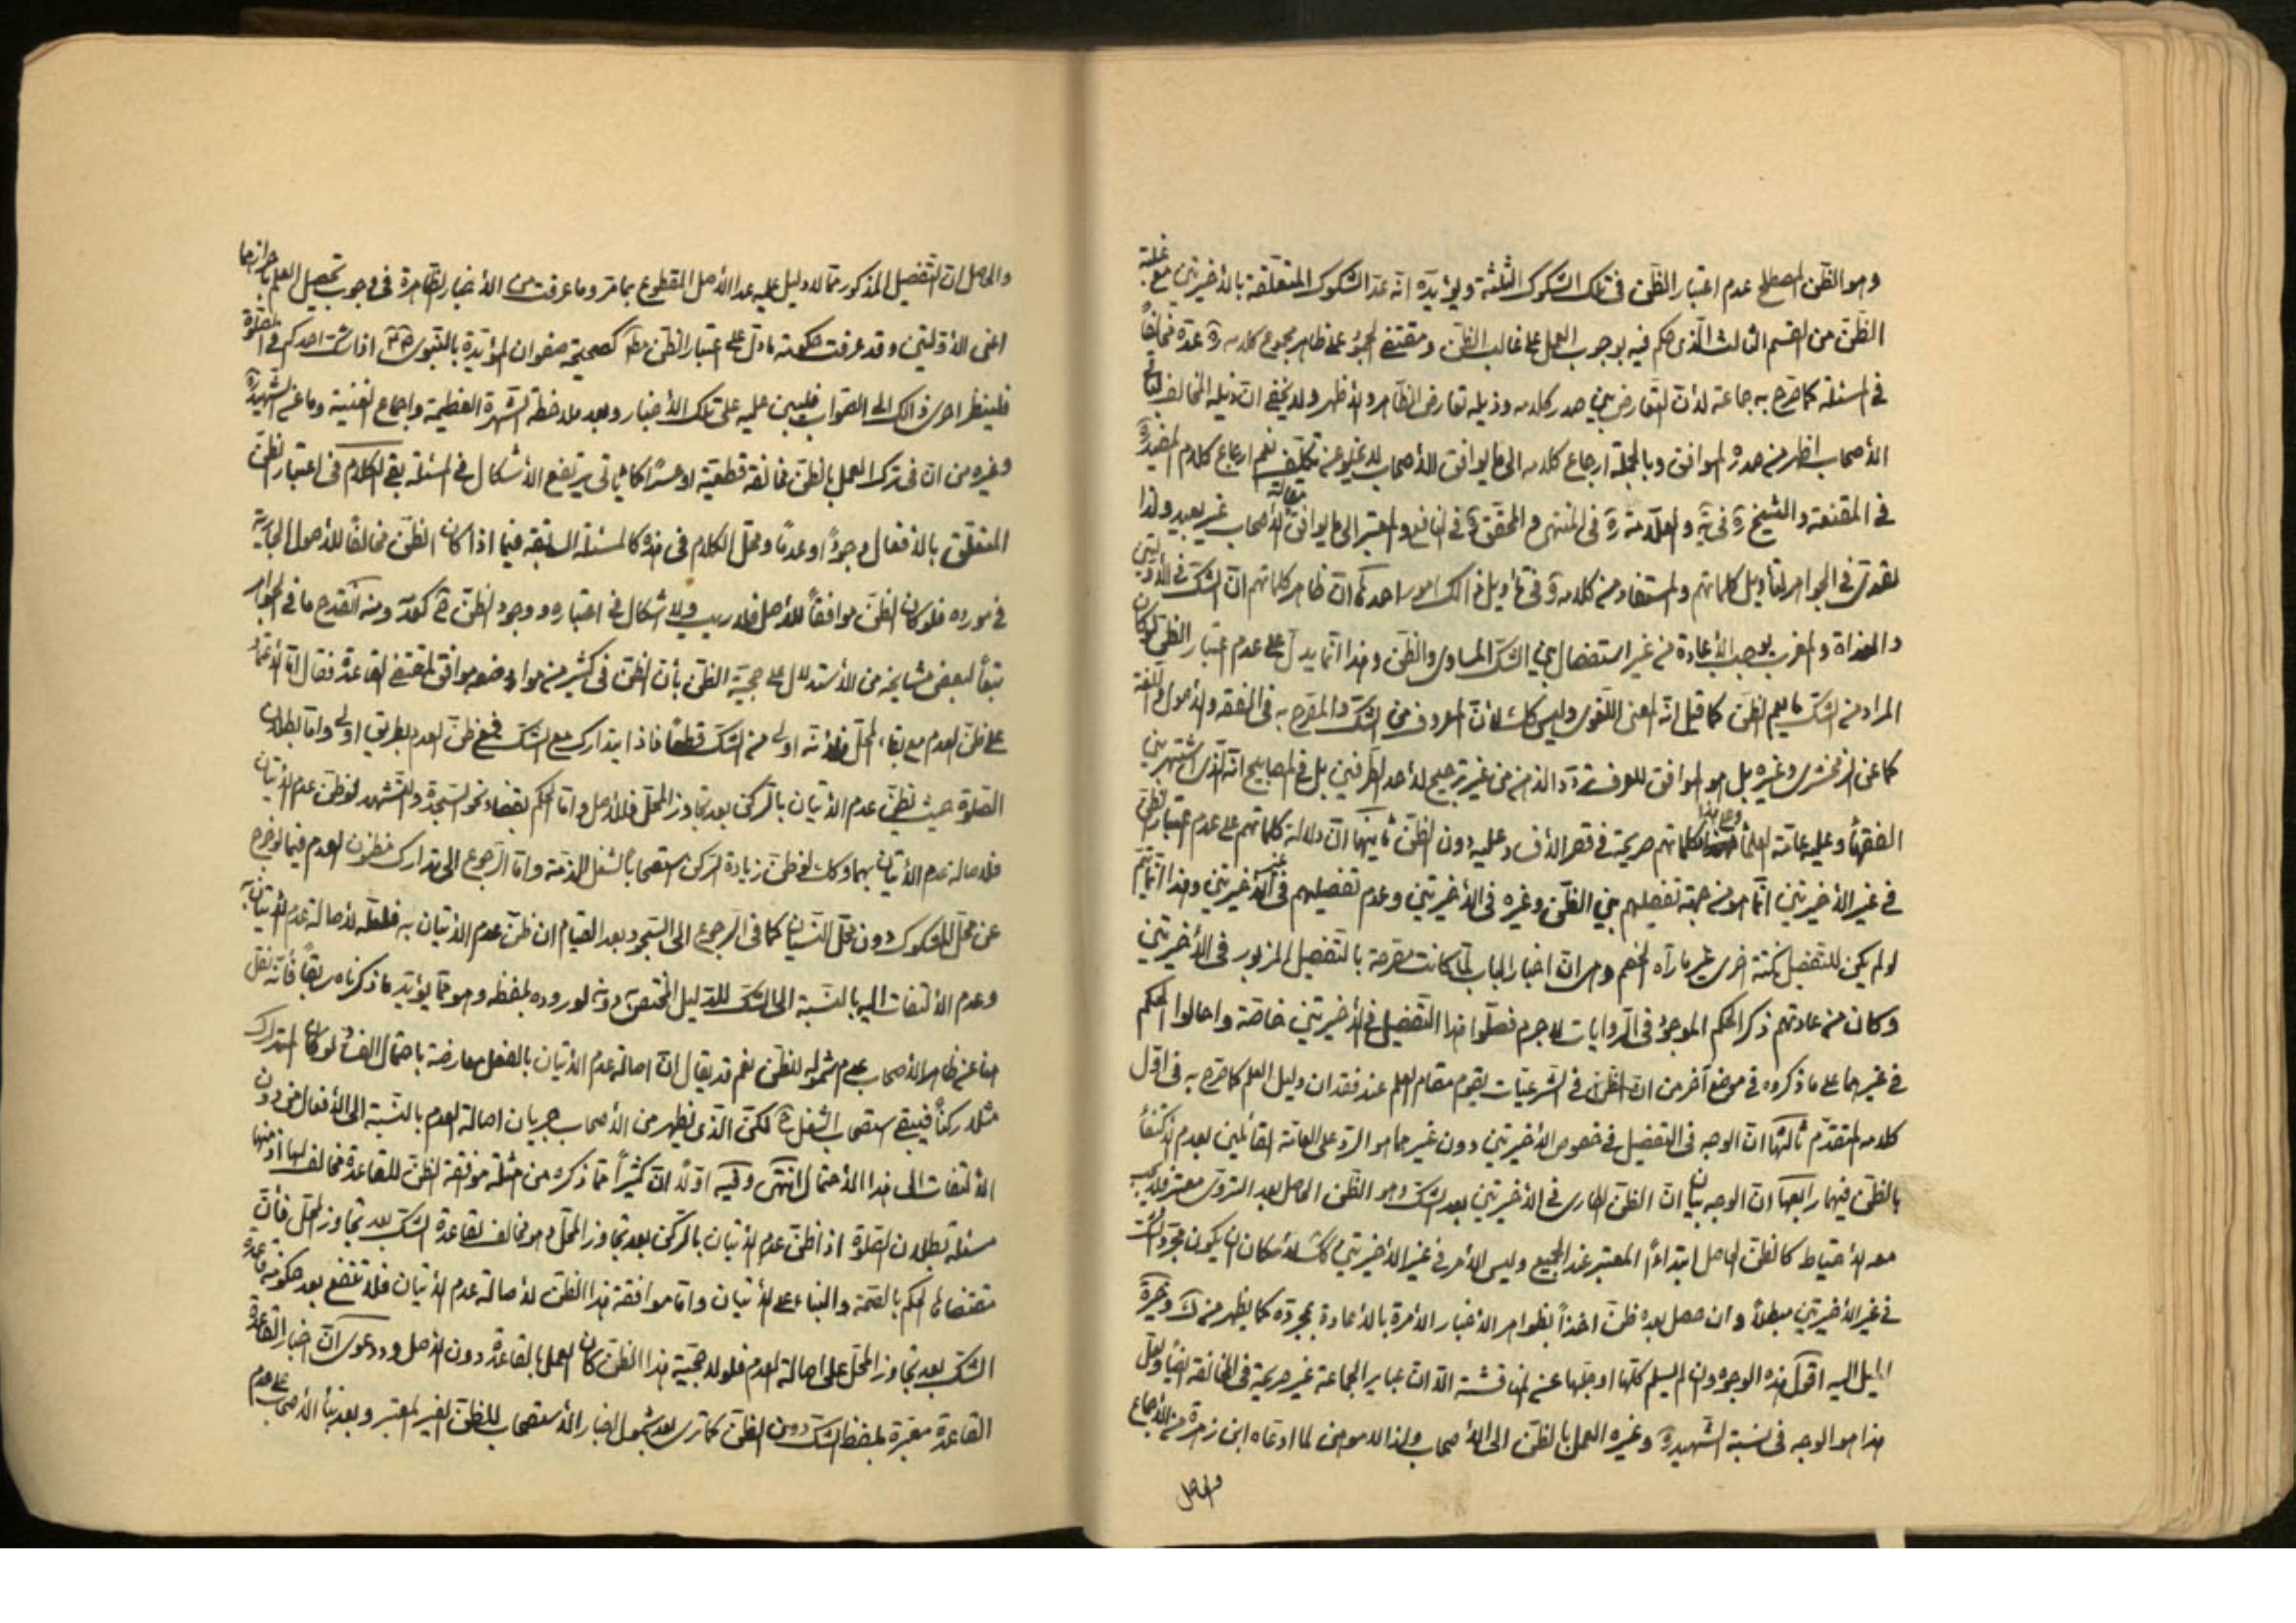 وهو الظن المصطلح عدم اعتبار الظن فى تلك الشكوك الثلثة ويؤيده انه عد الشكوك المتعلقة بالأخيرتين مع غلبة
الظن من القسم الثالث الذى حكم فيه بوجوب العمل على غالب الظن ومقتضى الجمود على ظاهر مجموع كلامه ره عده مخالفاً
فى المسئلة كما صرح به جماعة لأن التعارض بين صدر كلامه وذيله تعارض الظاهر والأظهر ولا يخفى ان ذيله المخالف لباقى
الأصحاب اظهر من صدره الموافق وبالجملة ارجاع كلامه الى ما يوافق الأصحاب لا يخلو عن تكلف نعم ارجاع كلام المفيد ره
فى المقنعة والشيخ ره فى والعلامة ره فى المنتهى والمحقق ره فى النافع والمعتبر الى ما يوافق مقالة الأصحاب غير بعيد ولذا
تصدى فى الجواهر لتأويل كلماتهم والمستفاد من كلامه ره فى تأويل ذالك امور احدها ان ظاهر كلماتهم ان الشك فى الأوليين
والغداة والمغرب يوجب الأعادة من غير استفصال بين الشك المساوى والظن وهذا انما يدل على عدم اعتبار الظن لو كان
المراد من الشك ما يعم الظن كما قيل انه المعنى اللغوى وليس كك لأن المعروف من الشك والمصرح به فى الفقه والأصول واللغة
كما عن الزمخشرى وغيره بل هو الموافق للعرف تردد الذهن من غير ترجيح لأحد الطرفين بل فى المصابيح انه الذى اشتهر بين
الفقهاء وعليه عامة العلماء وعلى هذا فكلماتهم صريحة فى قصر الأفساد عليه دون الظن ثانيها ان دلالة كلماتهم على عدم اعتبار الظن
فى غير الأخيرتين انما هو من جهة تفصيلهم بين الظن وغيره فى الأخيرتين وعدم تفصيلهم فى غير الأخيرتين وهذا انما يتم
لو لم يكن للتفصيل نكتة اخرى غير ما رآه الخصم وهى ان اخبار الباب لما كانت مصرحة بالتفصيل المزبور فى الأخيرتين
وكان من عادتهم ذكر الحكم الموجود فى الروايات لا جرم فصلوا هذا التفصيل فى الأخيرتين خاصة واحالوا الحكم
فى غيرهما على ما ذكروه فى موضع آخر من ان الظن فى الشرعيات يقوم مقام العلم عند فقدان دليل العلم كما صرح به فى اول
كلامه المتقدم ثالثها ان الوجه فى التفصيل فى خصوص الأخيرتين دون غيرهما هو الرد على العامة القائلين بعدم الأكتفاء
بالظن فيهما رابعها ان الوجه بيان ان الظن الطارى فى الأخيرتين بعد الشك وهو الظن الحاصل بعد التروى معتبر فلا يجب
معه الأحتياط كالظن الحاصل ابتداءً المعتبر عند الجميع وليس الأمر فى غير الأخيرتين كك لأمكان ان يكون مجرد الشك
فى غير الأخيرتين مبطلاً وان حصل بعده ظن اخذاً بظواهر الأخبار الأمرة بالأعادة بمجرده كما يظهر من ك وغيره
الميل اليه اقول هذه الوجوه وان لم يسلم كلها او جلها عن المناقشة الا ان عباير الجماعة غير صريحة فى المخالفة ايضاً ولعل
هذا هو الوجه فى نسبة الشهيد ره وغيره العمل بالظن الى الأصحاب ولذا لا موهن لما ادعاه ابن زهرة من الأجماع
والحاصل
والحاصل ان التفصيل المذكور مما لا دليل عليه عدا الأصل المقطوع بما مر وما عرفت من الأخبار الظاهرة فى وجوب تحصيل العلم باحرازهما
اعنى الأوليتين وقد عرفت حكومة ما دل على اعتبار الظن مط كصحيحة صفوان المؤيدة بالنبوى اذا شك احدكم فى الصلوة
فلينظر احرى ذالك الى الصواب فليبن عليه على تلك الأخبار وبعد ملاحظة الشهرة العظيمة واجماع الغنية وما عن الشهيد ره
وغيره من ان فى ترك العمل بالظن مخالفة قطعية او عسرًا كما يأتى يرتفع الأشكال فى المسئلة بقى الكلام فى اعتبار الظن
المتعلق بالأفعال وجوداً او عدمًا ومحل الكلام فى هذه كالمسئلة السابقة فيما اذا كان الظن مخالفًا للأصول الجارية
فى مورده فلو كان الظن موافقاً للأصل فلا ريب ولا اشكال فى اعتباره ووجود الظن ح كعدمه ومنه انقدح ما فى الجواهر
تبعاً لبعض مشايخه من الأستدلال على حجية الظن بأن الظن فى كثير من موارد ضعه موافق لمقتضى القاعدة فقال اما الأعتماد
على ظن العدم مع بقاء المحل فلأنه اولى من الشك قطعاً فاذا يتدارك مع الشك فمع ظن العدم بطريق اولى واما بطلان
الصلوة حيث يظن عدم الأتيان بالركن بعد تجاوز المحل فللأصل واما الحكم بقضاء نحو السجدة والتشهد لو ظن عدم الأتيان
فلأصالة عدم الأتيان بهما وكك لو ظن زيادة الركن استصحاباً لشغل الذمة واما الرجوع الى تدارك مظنون العدم فيما لو خرج
عن محل المشكوك دون محل النسيان كما فى الرجوع الى السجود بعد القيام ان ظن عدم الأتيان به فلعله لأصالة عدم الأتيان به
وعدم الألتفات اليه بالنسبة الى الشك للدليل المختص دونه لوروده بلفظه وهو مما يؤيد ما ذكرناه سابقاً فأنه نقل
هنا عن ظاهر الأصحاب عدم شموله للظن نعم قد يقال ان اصالة عدم الأتيان بالفعل معارضة باحتمال الفساد لو كان استدراك
مثله ركناً فيبقى استصحاب الشغل ح لكن الذى يظهر من الأصحاب جريان اصالة العدم بالنسبة الى الأفعال من دون
الألتفات الى هذا الأحتمال انتهى وفيه اولاً ان كثيراً مما ذكره من امثلة موافقة الظن للقاعدة مخالف لها اذ منها
مسئلة بطلان الصلوة اذا ظن عدم الأتيان بالركن بعد تجاوز المحل وهو مخالف لقاعدة الشك بعد تجاوز المحل فأن
مقتضاها الحكم بالصحة والبناء على الأتيان واما موافقة هذا الظن لأصالة عدم الأتيان فلا تنفع بعد حكومة قاعدة
الشك بعد تجاوز المحل على اصالة العدم فلولا حجية هذا الظن كان العمل بالقاعدة دون الأصل ودعوى ان اخبار القاعدة
القاعدة مقررة بلفظ الشك دون الظن كما ترى بعد شمول اخبار الأستصحاب للظن الغير المعتبر وبعد بناء الأصحاب على عدم